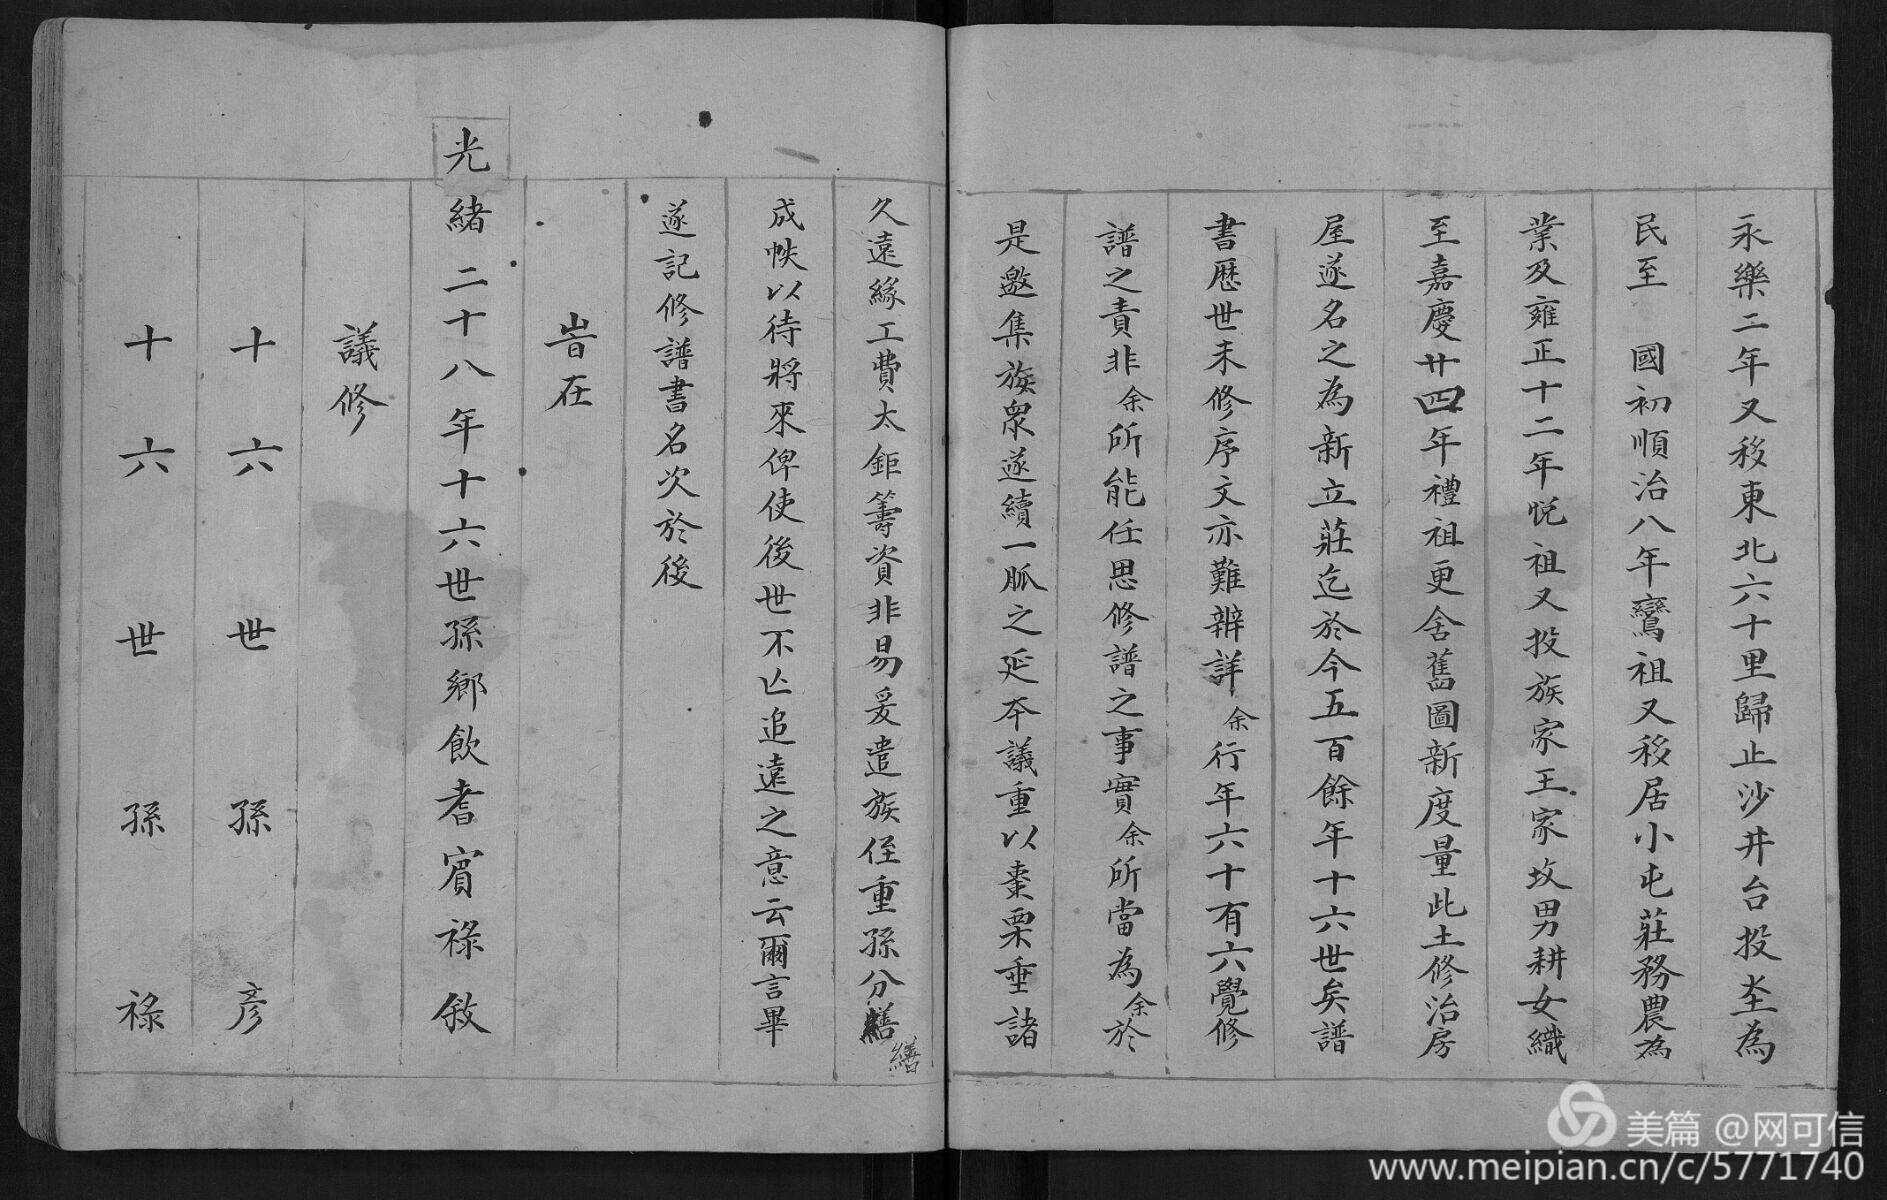 永樂二年又移東北六十里歸止沙井台投坔為
民至　國初順治八年鸞祖又移居小屯莊務農為
業及雍正十二年悅祖又投族家王家坟男耕女織
至嘉慶廿四年禮祖更舍舊圖新度量此土修治房
屋遂名之為新立莊迄於今五百餘年十六世矣譜
書歷世未修序文亦難辨詳余行年六十有六覺修
譜之責非余所能任思修譜之事實余所當為余於
是邀集族眾遂續一脈之延夲議重以棗栗垂諸
久遠緣工費太鉅籌資非易爰遣族侄重孫分繕
繕
成帙以待將來俾使後世不亡追遠之意云爾言畢
遂記修譜書名次於後
旹在
光緒二十八年十六世孫鄉飲耆賓祿敘
議修
十六世孫彥
十六世孫祿
美篇 @网可信
www.meipian.cn/c/5771740